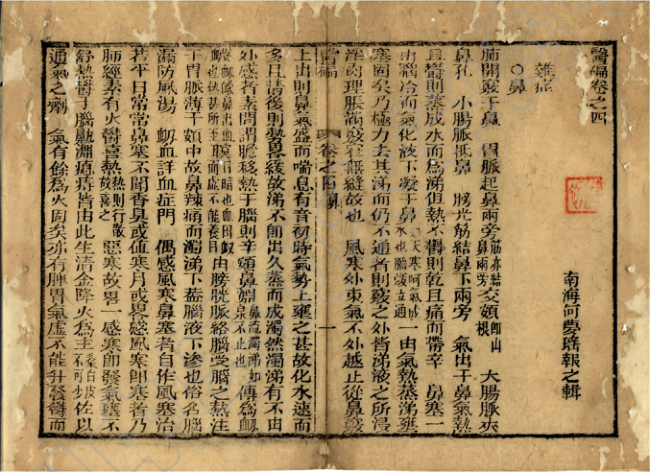 醫碥卷之四
南海何夢瑤報之輯
雜症
○鼻
肺開竅于鼻 胃脈起鼻兩旁筋亦結鼻兩旁交頞即山根 大腸脈夾
鼻孔 小腸脈抵鼻 膀光筋結鼻下兩旁 氣出于鼻氣熱
且鬱則蒸成水而為涕但熱不鬱則乾且痛而帶辛 鼻塞一
由腦冷而氣化液下凝于鼻 一由氣熱蒸涕壅
塞固矣乃極力去其涕而仍不通者則竅之外皆涕液之所浸
淫肉理脹滿竅至無縫故也 風寒外束氣不外越止從鼻竅
上出則鼻氣盛而喘息有音初時氣勢上壅之甚故化水速而
多且清後則勢畧緩故涕不即出久蒸而成濁然濁涕有不由
外感者素問謂膽移熱于腦則辛頞鼻淵鼻流濁涕如泉不止也傳為衄
由膀胱脈絡腦受腦之熱注
于胃脈薄于頞中故鼻辣痛而濁涕下葢腦液下滲也俗名腦
漏防風湯 衄血詳血症門 偶感風寒鼻塞者自作風寒治
若平日常常鼻塞不聞香臭或值寒月或畧感風寒即塞者乃
肺經素有火鬱喜熱熱則行散故喜之惡寒故畧一感寒即發氣壅不
舒熱鬱于腦鼽淵瘜痔皆由此生清金降火為主佐以
通氣之劑 氣有餘為火固矣亦有脾胃氣虛不能升發鬱而
醫碥 卷之四鼻 一